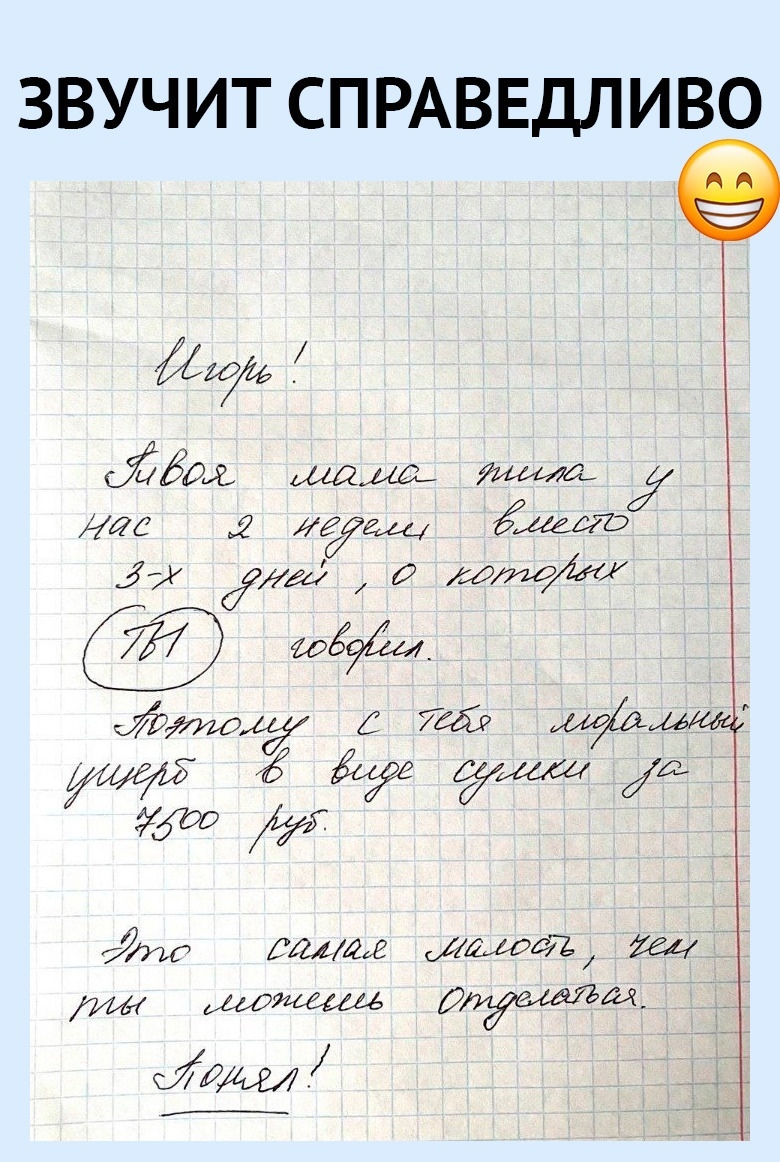 ЗВУЧИТ СПРАВЕДЛИВО
Игорь!
Твоя мама жила у
нас 2 недели вместо
3-х дней, о которых
ТЫ говорил.
Поэтому с тебя моральный
ущерб в виде сумки за
7500 руб.
Это самая малость, чем
ты можешь отделаться.
Понял!